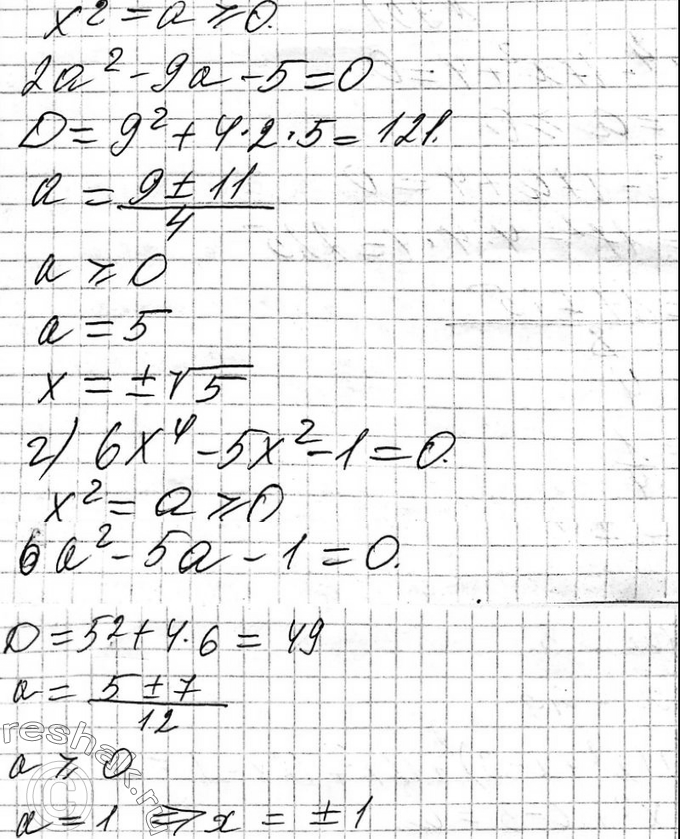 x² = a ⩾ 0.
2a² - 9a - 5 = 0
D = 9² + 4·2·5 = 121.
a = (9 ± 11)/4
a ⩾ 0
a = 5
x = ±√5
г) 6x⁴ - 5x² - 1 = 0.
x² = a ⩾ 0
6a² - 5a - 1 = 0.
D = 5² + 4·6 = 49
a = (5 ± 7)/12
a ⩾ 0
a = 1 ⇒ x = ±1
reshak.ru